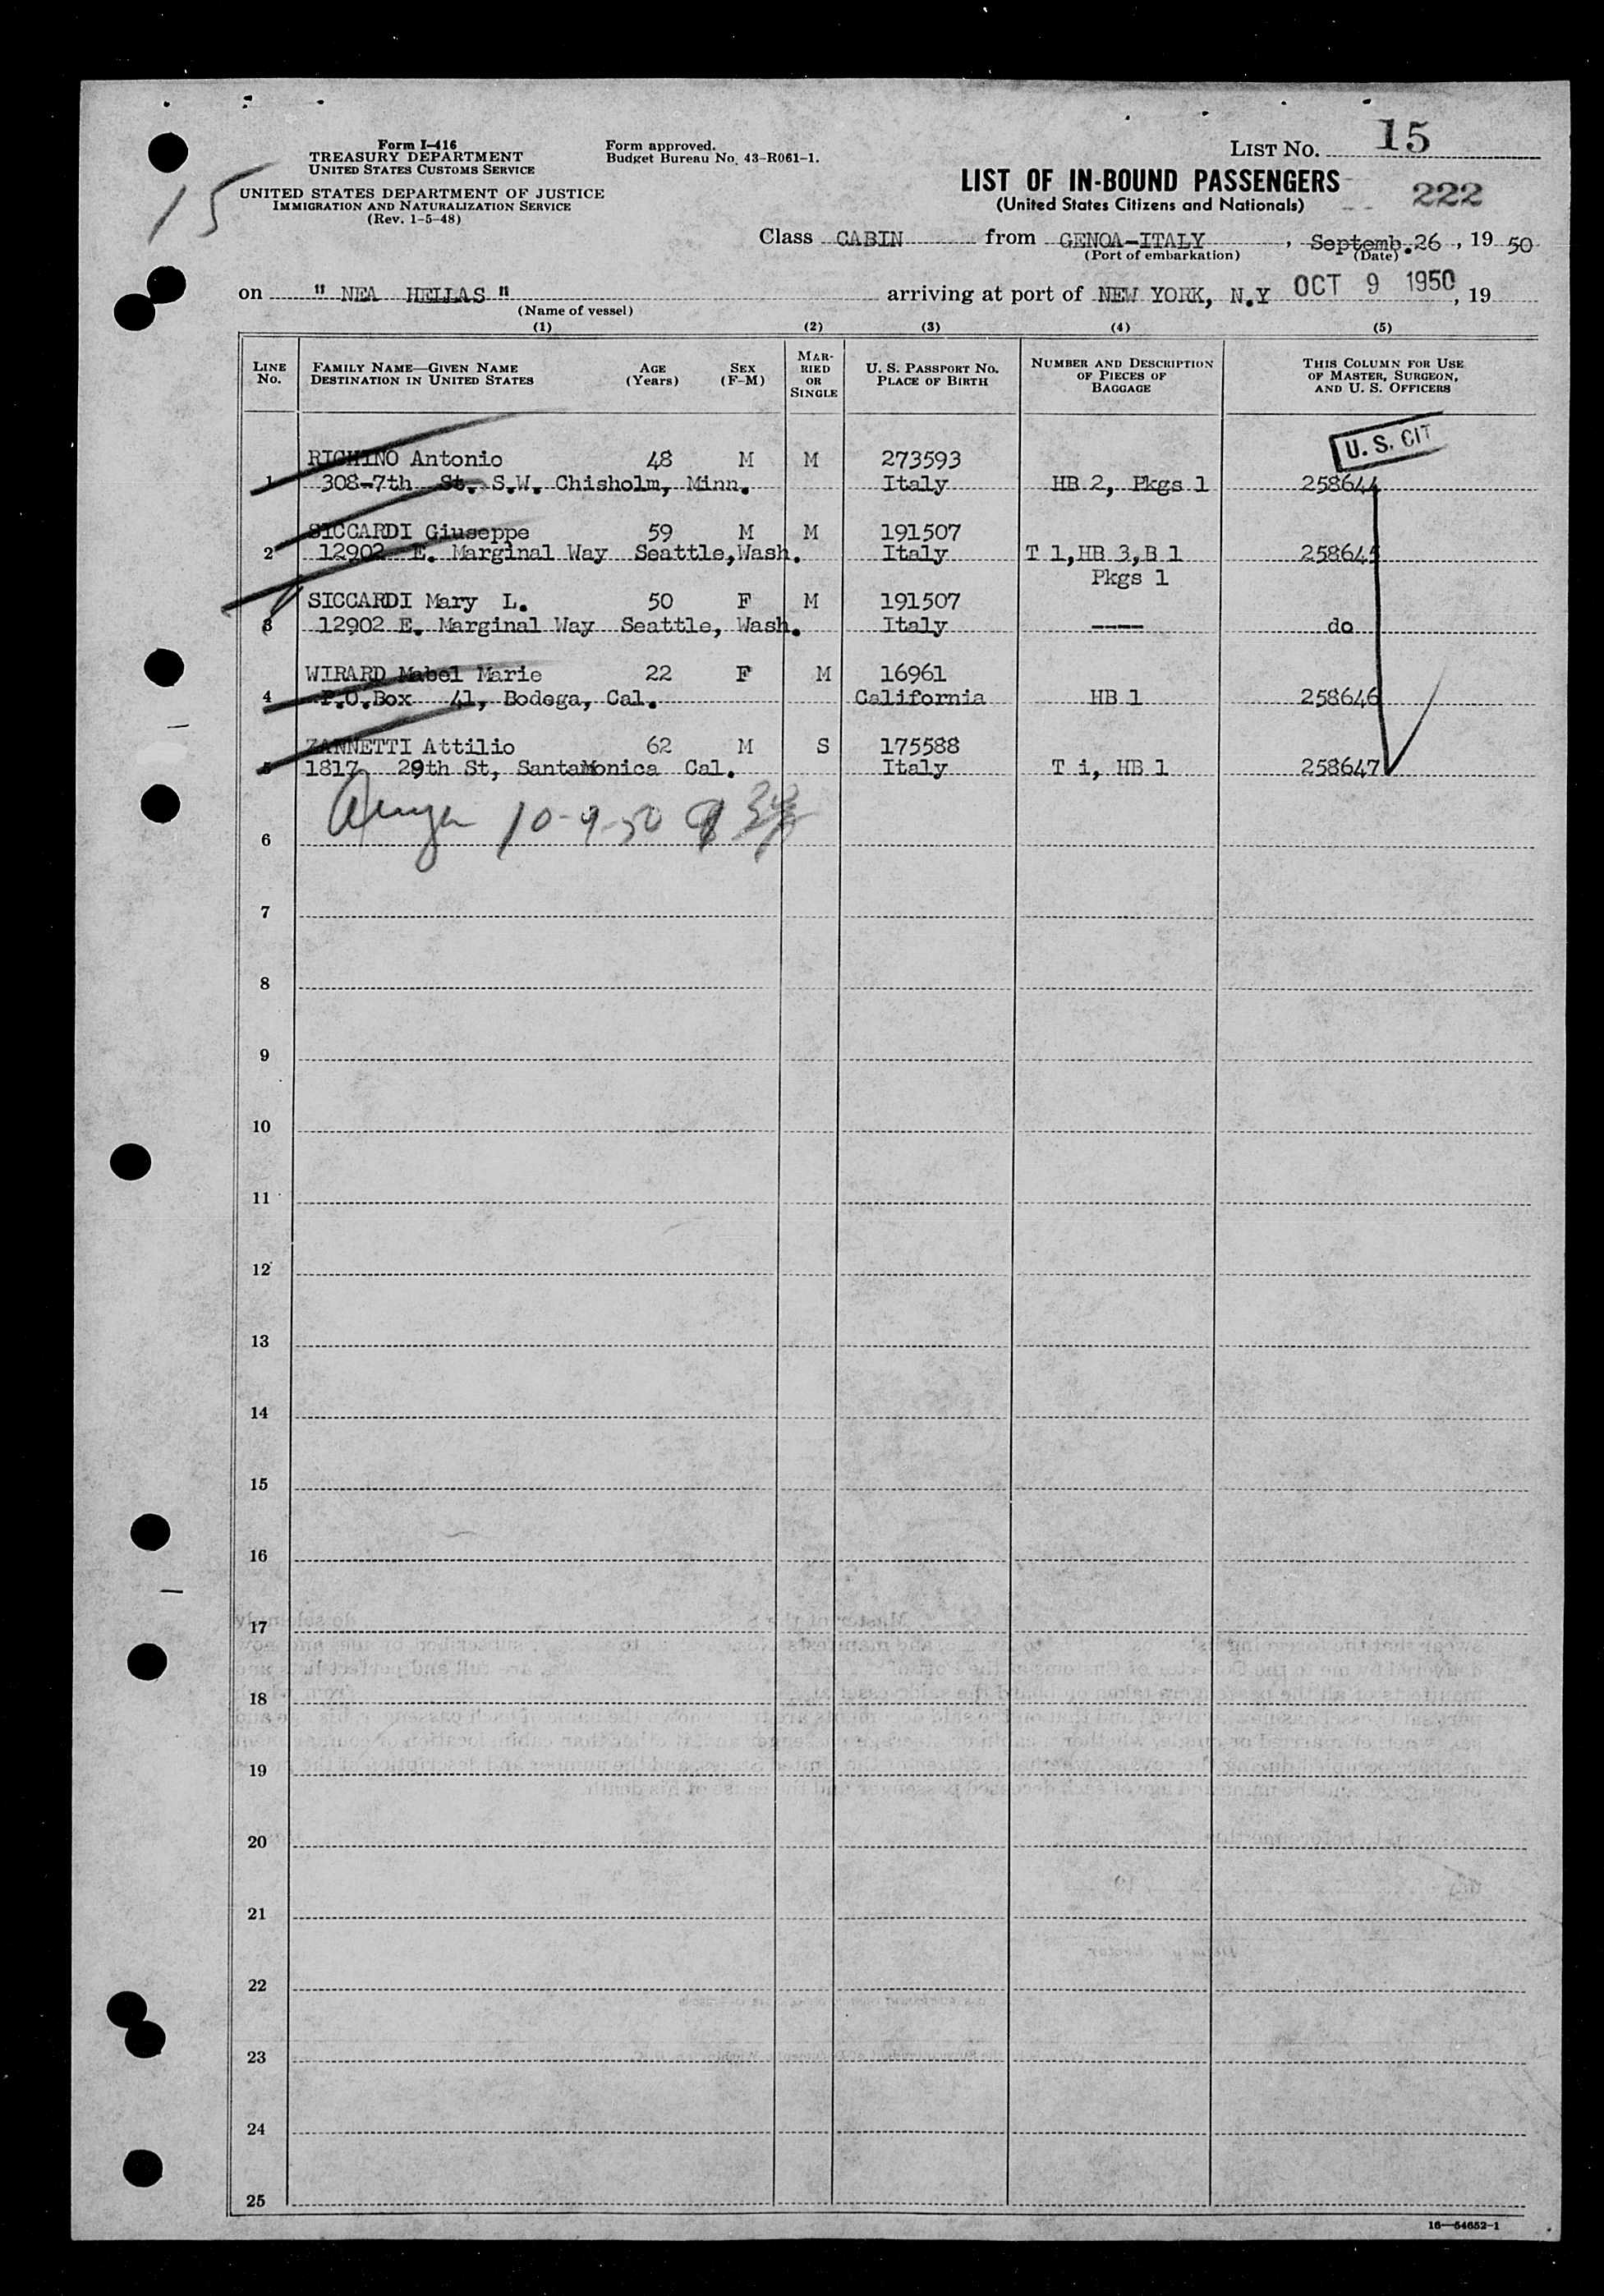 Form I-416
TREASURY DEPARTMENT
UNITED STATES CUSTOMS SERVICE
UNITED STATES DEPARTMENT OF JUSTICE
IMMIGRATION AND NATURALIZATION SERVICE
(Rev. 1-5-48)
Form approved.
Budget Bureau No. 43-R061-1.
LIST NO. 15
15
LIST OF IN-BOUND PASSENGERS
(United States Citizens and Nationals)
222
Class CABIN from GENOA-ITALY, Septemb.26, 19 50
(Port of embarkation) (Date)
on " NEA HELLAS " arriving at port of NEW YORK, N.Y OCT 9 1950, 19
(Name of vessel)
(1) (2) (3) (4) (5)
LINE NO.
FAMILY NAME—GIVEN NAME
DESTINATION IN UNITED STATES
AGE (Years)
SEX (F-M)
MARRIED OR SINGLE
U. S. PASSPORT NO.
PLACE OF BIRTH
NUMBER AND DESCRIPTION OF PIECES OF BAGGAGE
THIS COLUMN FOR USE OF MASTER, SURGEON, AND U. S. OFFICERS
U. S. CIT
RIGHINO Antonio 48 M M 273593
1 308-7th St. S.W. Chisholm, Minn. Italy HB 2, Pkgs 1 258644
SICCARDI Giuseppe 59 M M 191507
2 12902 E. Marginal Way Seattle,Wash. Italy T 1,HB 3,B 1 258645
Pkgs 1
SICCARDI Mary L. 50 F M 191507
3 12902 E. Marginal Way Seattle, Wash. Italy ---- do
WIRARD Mabel Marie 22 F M 16961
4 P.O.Box 41, Bodega, Cal. California HB 1 258646
ZANNETTI Attilio 62 M S 175588
5 1817 29th St, SantaMonica Cal. Italy T i, HB 1 258647
10-9-50
6
7
8
9
10
11
12
13
14
15
16
17
18
19
20
21
22
23
24
25
16—54652-1